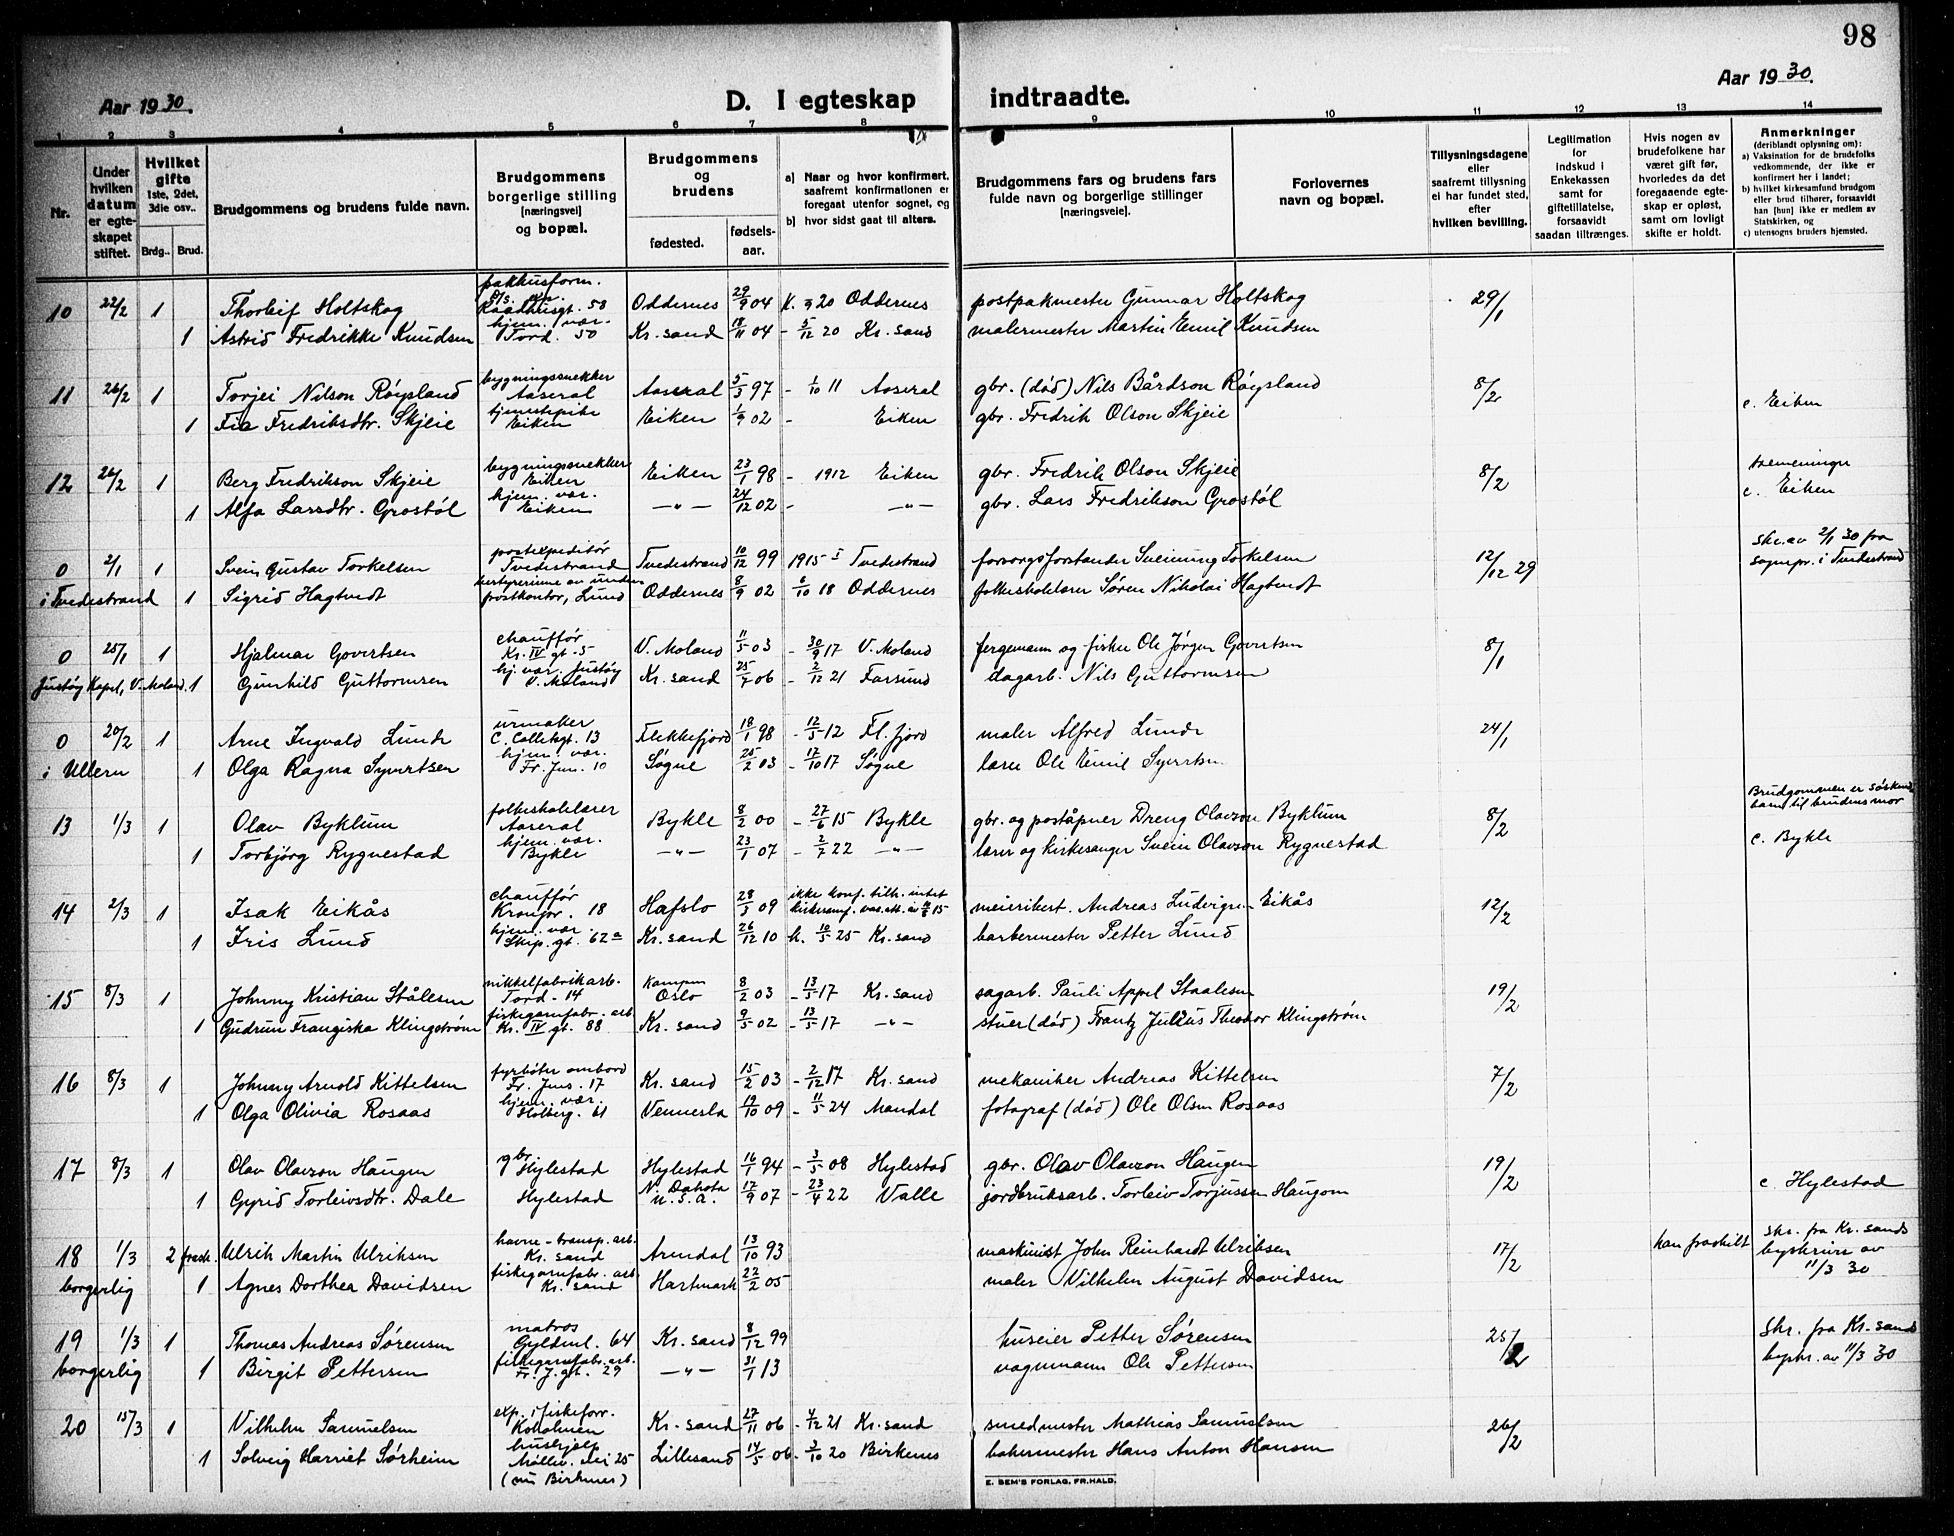 98
Aar 1930.
D. I egteskap indtraadte.
Aar 1930.
1 2 3 4 5 6 7 8 9 10 11 12 13 14
Nr.
Under hvilken datum er egteskapet stiftet.
Hvilket gifte 1ste, 2det, 3die osv..
Brdg.. Brud.
Brudgommens og brudens fulde navn.
Brudgommens borgerlige stilling [næringsvei] og bopæl.
Brudgommens og brudens
fødested. fødsels-aar.
a) Naar og hvor konfirmert, saafremt konfirmationen er foregaat utenfor sognet, og
b) hvor sidst gaat til alters.
Brudgommens fars og brudens fars fulde navn og borgerlige stillinger [næringsveie].
Forlovernes navn og bopæl.
Tillysningsdagene eller saafremt tillysning ei har fundet sted, efter hvilken bevilling.
Legitimation for indskud i Enkekassen samt for giftetillatelse, forsaavidt saadan tiltrænges.
Hvis nogen av brudefolkene har været gift før, hvorledes da det foregaaende egteskap er opløst, samt om lovligt skifte er holdt.
Anmerkninger (deriblandt oplysning om):
a) Vaksination for de brudefolks vedkommende, der ikke er konfirmert her i landet;
b) hvilket kirkesamfund brudgom eller brud tilhører, forsaavidt han [hun] ikke er medlem av Statskirken, og
c) utensogns bruders hjemsted.
10 22/2 1 Thorleif Holtskog pakkhusform. Raadhusgt. 53 Oddernes 29/9 04 K. 20 Oddernes postpakmester Gunnar Holtskog 29/1
1 Astrid Fredrikke Knudsen hjem. vær. Tord. 50 Kr. sand 18/11 04 - 5/12 20 Kr. sand malermester Martin Emil Knudsen
11 26/2 1 Torjei Nilson Røysland bygningssnekker Aaseral Aaseral 5/3 97 - 1/10 11 Aaseral gbr. (död) Nils Bårdson Røysland 8/2
1 Fia Fredriksdtr. Skjeie tjenestepike Eiken Eiken 1/9 02 - Eiken gbr. Fredrik Olson Skjeie c. Eiken
12 26/2 1 Berg Fredrikson Skjeie bygningssnekker Eiken Eiken 23/1 98 - 1912 Eiken gbr. Fredrik Olson Skjeie 8/2 tremeninger
1 Alfa Larsdtr. Grostøl hjem. vær. Eiken -"- 24/12 02 - -"- gbr. Lars Fredrikson Grostøl c. Eiken
0 2/1 1 Svein Gustav Torkelsen postexpeditør Tvedestrand Tvedestrand 10/12 99 1915 Tvedestrand forsorgsforstander Sveinung Torkelsen 12/12 29 skr. av 2/1 30 fra sognepr. i Tvedestrand
i Tvedestrand 1 Sigrid Hagtvedt bestyrerinne av under postkontor, Lund Oddernes 8/9 02 6/10 18 Oddernes folkeskolelærer Søren Nikolai Hagtvedt
0 25/1 1 Hjalmar Govertsen chauffør Kr. IV gt. 5 V. Moland 11/5 03 - 30/9 17 V. Moland fergemann og fisker Ole Jørgen Govertsen 8/1
Justøy Kapel, V. Moland. 1 Gunhild Guttormsen hj. vær. Justøy V. Moland Kr. sand 25/7 06 - 2/12 21 Farsund dagarb. Nils Guttormsen
0 20/2 1 Arne Ingvald Lunde urmaker C. Colletsgt. 13 Flekkefjord 18/1 98 - 12/5 12 Fl. fjord maler Alfred Lunde 24/1
i Ullern 1 Olga Ragna Syvertsen hjem. vær. Fr. Jms. 10 Søgne 25/2 03 - 17/10 17 Søgne lærer Ole Emil Syvertsen
13 1/3 1 Olav Byklum folkeskolelærer Aaseral Bykle 8/2 00 - 27/6 15 Bykle gbr. og poståpner Dreng Olavson Byklum 8/2 Brudgommen er søskendebarn til brudens mor
1 Torbjørg Rygnestad hjem. vær. Bykle -"- 23/1 07 - 2/7 22 -"- lærer og kirkesanger Svein Olavson Rygnestad c. Bykle
14 2/3 1 Isak Eikås chauffør Kronpr. 18 Hafslo 28/5 09 ikke konf. tilh. intet kirkesamf. vac. att. av 15 meieribest. Andreas Ludvigsen Eikås 12/2
1 Iris Lund hjem. vær. Skip. gt. 62a Kr. sand 26/12 10 k. 10/5 25 Kr. sand barbermester Petter Lund
15 8/3 1 Johnny Kristian Stålesen nikkelfabrikarb. Tord. 14 Kampen Oslo 8/2 03 - 13/5 17 Kr. sand sagarb. Pauli Appel Staalesen 19/2
1 Gudrun Frangiska Klingstrøm fiskegarnfabr. arb. Kr. IV gt. 88 Kr. sand 9/5 02 - 13/5 17 -"- stuer (død) Frantz Julius Theodor Klingstrøm
16 8/3 1 Johnny Arnold Kittelsen fyrbøter ombord Fr. Jms. 17 Kr. sand 15/2 03 - 2/12 17 Kr. sand mekaniker Andreas Kittelsen 7/2
1 Olga Olivia Rosaas hjem. vær. Holberg. 61 Vennesla 19/10 09 - 11/5 24 Mandal fotograf (död) Ole Olsen Rosaas
17 8/3 1 Olav Olavson Haugen gbr Hylestad Hylestad 16/1 94 - 3/5 08 Hylestad gbr. Olav Olavson Haugen 19/2
1 Gyrid Torleivsdtr. Dale Hylestad N. Dakota U.S.A. 17/9 07 - 23/4 22 Valle jordbruksarb. Torleiv Torjussen Haugom c. Hylestad
18 1/3 2 frask. Ulrik Martin Ulriksen havne-transp. arb. Kr. sand Arendal 13/10 93 maskinist John Reinhardt Ulriksen 17/2 han fraskilt skr. fra Kr. sands byskriver av 11/3 30
borgerlig 1 Agnes Dorthea Davidsen fiskegarnfabr. arb. Kr. sand Hartmark 22/2 05 maler Vilhelm August Davidsen
19 1/3 1 Thomas Andreas Sørensen matros Gyldenl. 64 Kr. sand 8/12 99 huseier Petter Sørensen 25/2 Skr. fra Kr. sands byskr. av 11/3 30
borgerlig 1 Birgit Pettersen fiskegarnfabr. arb. Fr. J. gt. 29 -"- 31/1 13 vognmann Ole Pettersen
20 15/3 1 Vilhelm Samuelsen exp. i fiskeforr. Kolholmen Kr. sand 27/11 06 - 4/12 21 Kr. sand smedmester Mathias Samuelsen 26/2
1 Solveig Harriet Sørheim hushjelp Møllev. lei 25 (nu Birkenes) Lillesand 14/5 06 - 3/10 20 Birkenes bakermester Hans Anton Hansen
E. SEM'S FORLAG, FR.HALD.